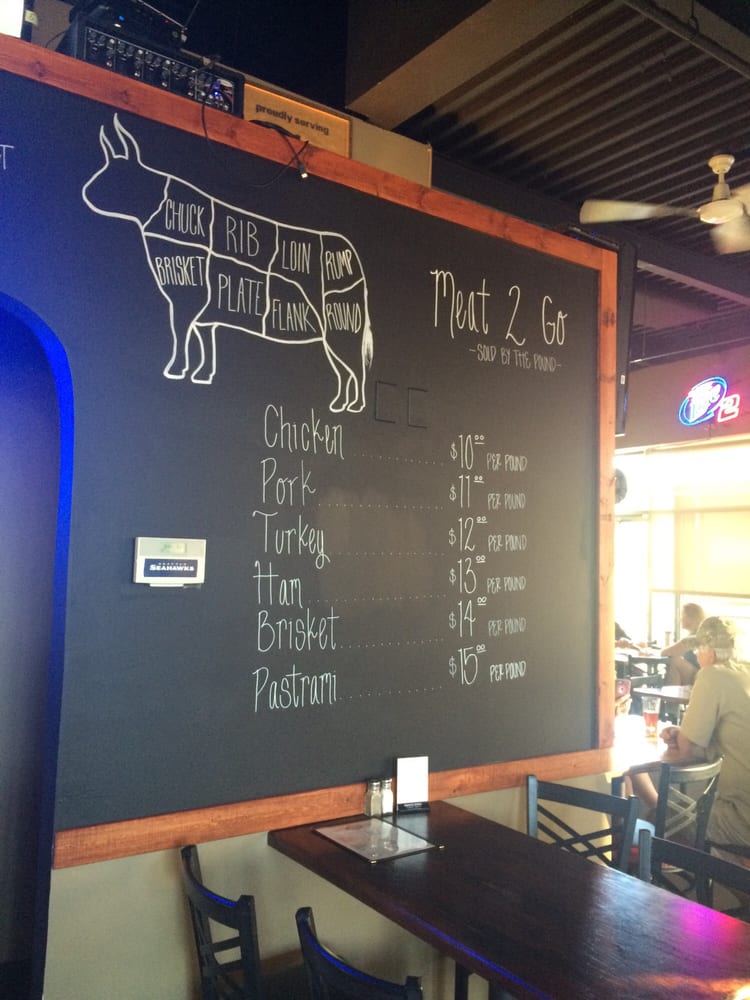 proudly serving
T
CHUCK
RIB
LOIN
RUMP
BRISKET
PLATE
FLANK
ROUND
Meat 2 Go
-SOLD BY THE POUND-
Chicken .............. $10.00 PER POUND
Pork .............. $11.00 PER POUND
Turkey .............. $12.00 PER POUND
Ham .............. $13.00 PER POUND
Brisket .............. $14.00 PER POUND
Pastrami .............. $15.00 PER POUND
SEAHAWKS